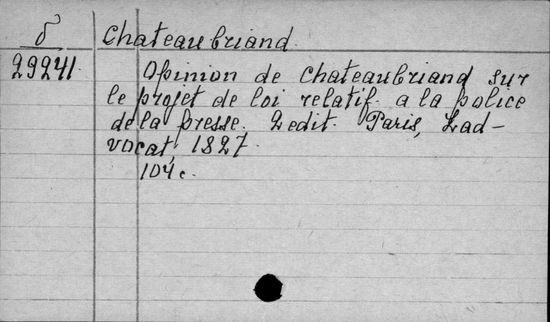 б Chateaubriand.
29241.
Opinion de Chateaubriand sur
le projet de loi relatif a la police
de la presse. 2 edit. Paris, Lad-
vocat, 1827.
104 c.